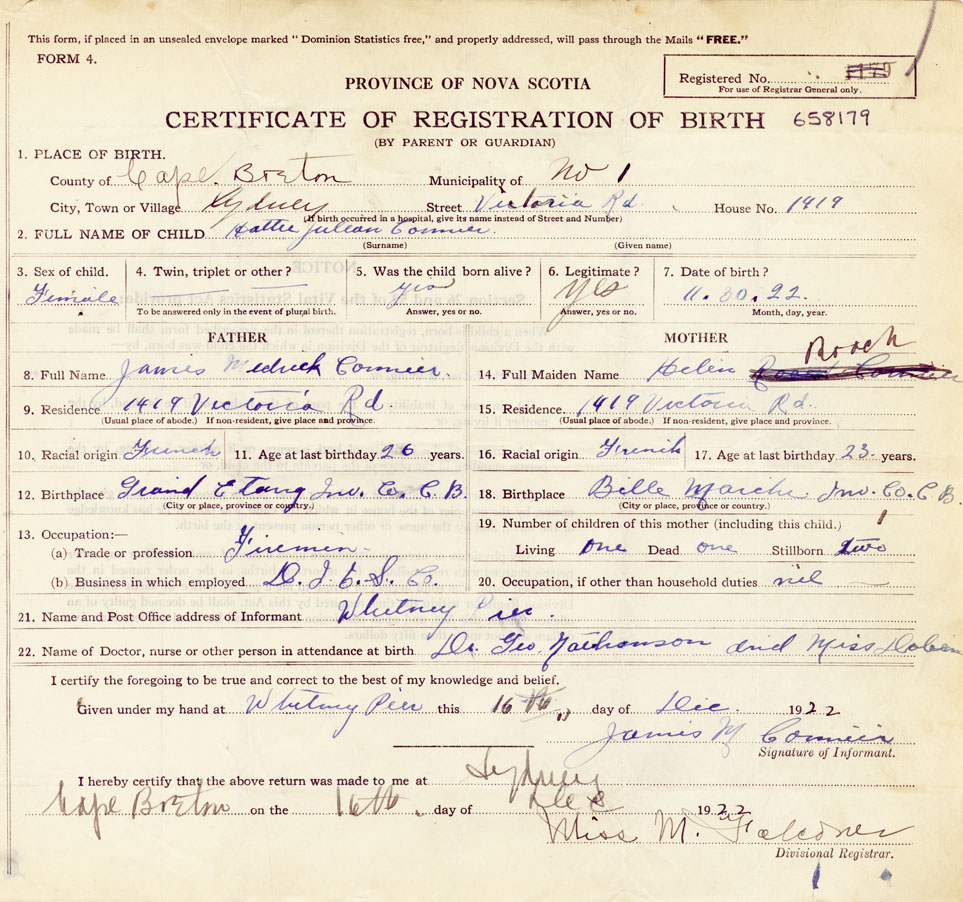 This form, if placed in an unsealed envelope marked "Dominion Statistics free," and properly addressed, will pass through the Mails "FREE."
FORM 4.
Registered No.
For use of Registrar General only.
PROVINCE OF NOVA SCOTIA
CERTIFICATE OF REGISTRATION OF BIRTH 658179
(BY PARENT OR GUARDIAN)
1. PLACE OF BIRTH.
County of Cape Breton Municipality of No 1
City, Town or Village Sydney Street Victoria Rd. House No. 1419
(If birth occurred in a hospital, give its name instead of Street and Number)
2. FULL NAME OF CHILD Hattie Julian Cormier
(Surname) (Given name)
3. Sex of child. 4. Twin, triplet or other? 5. Was the child born alive? 6. Legitimate? 7. Date of birth?
Female yes Yes 11. 30. 22.
To be answered only in the event of plural birth. Answer, yes or no. Answer, yes or no. Month, day, year.
FATHER MOTHER
8. Full Name James Medrick Cormier. 14. Full Maiden Name Helen Roach
9. Residence 1419 Victoria Rd 15. Residence 1419 Victoria Rd.
(Usual place of abode.) If non-resident, give place and province. (Usual place of abode.) If non-resident, give place and province.
10. Racial origin French 11. Age at last birthday 26 years. 16. Racial origin French 17. Age at last birthday 23 years.
12. Birthplace Grand Etang Inv. Co. C. B. 18. Birthplace Belle Marche Inv. Co. C B
(City or place, province or country.) (City or place, province or country.)
13. Occupation:— 19. Number of children of this mother (including this child.)
(a) Trade or profession Firemen Living one Dead one Stillborn two
(b) Business in which employed D. I. & S. Co. 20. Occupation, if other than household duties nil
21. Name and Post Office address of Informant Whitney Pier.
22. Name of Doctor, nurse or other person in attendance at birth Dr. Geo. Nathanson and Miss
I certify the foregoing to be true and correct to the best of my knowledge and belief.
Given under my hand at Whitney Pier this 16th day of Dec. 1922
James M Cormier
Signature of Informant.
I hereby certify that the above return was made to me at Sydney
Cape Breton on the 16th day of Dec 1922
Miss M. Falconer
Divisional Registrar.